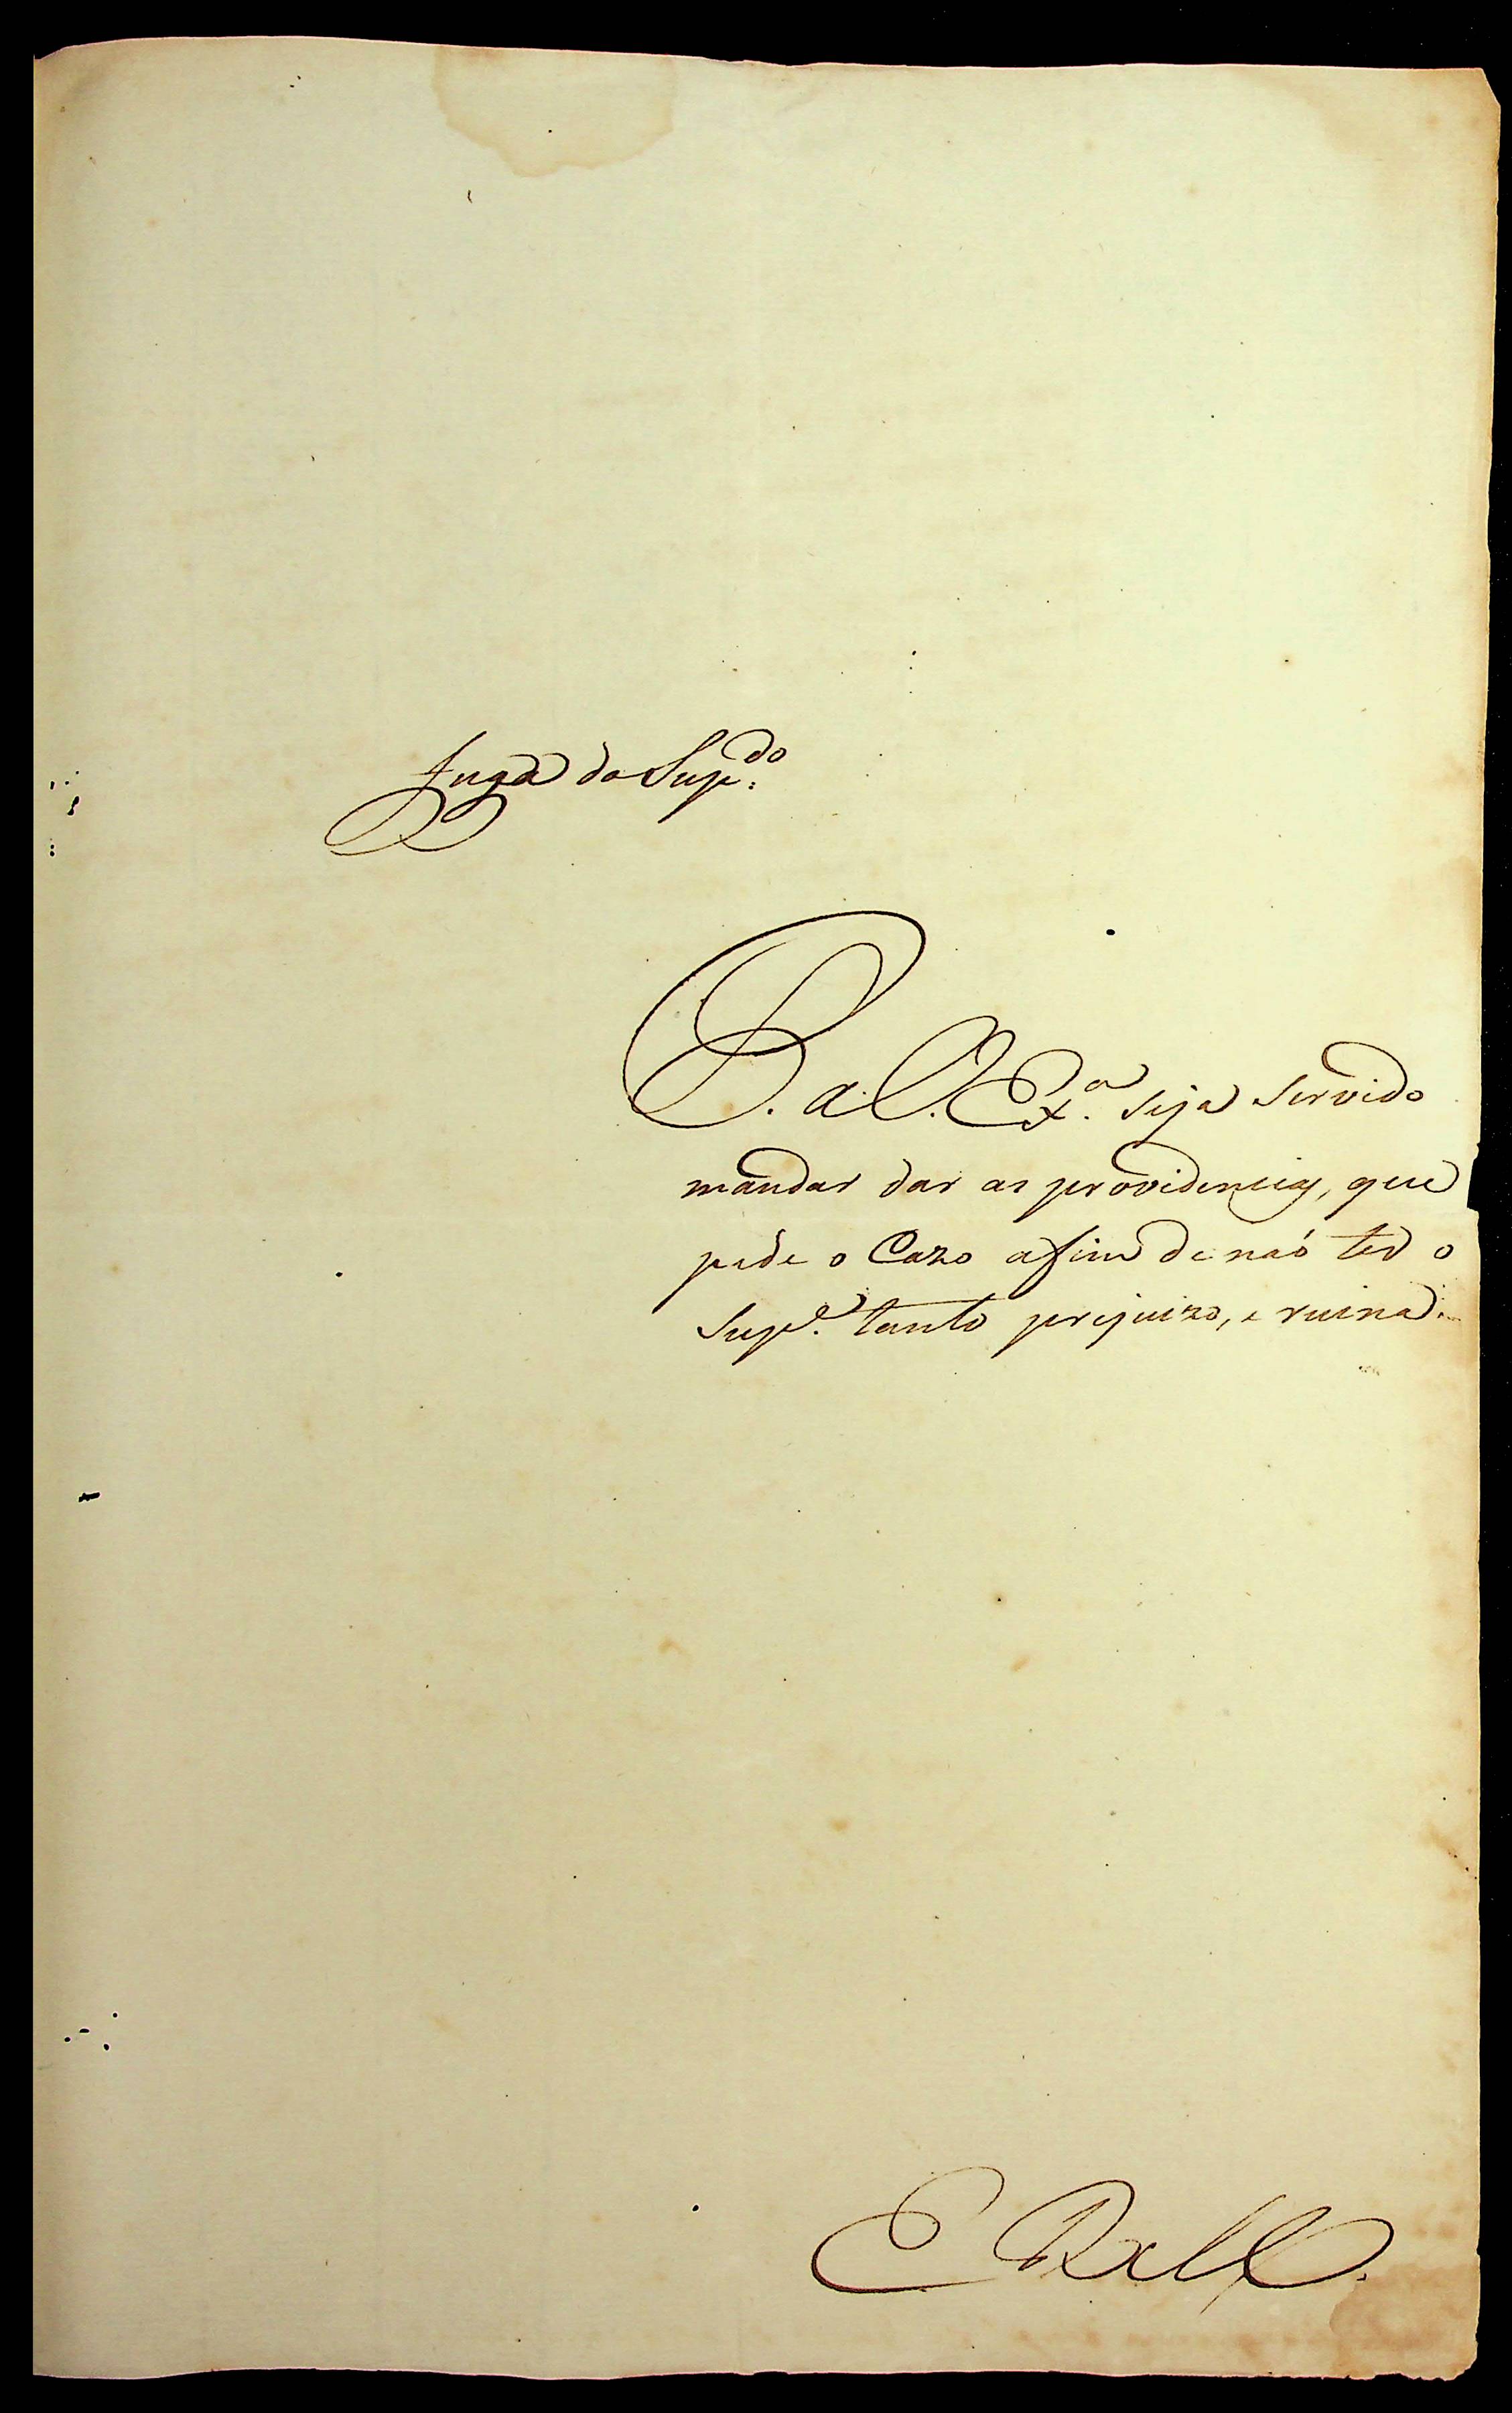 fuga do Sup.do
P. a V. Ex.a seja servido
mandar dar as providencias, que
pede o Cazo afim de naó ter o
Sup.e tanto prejuizo, e ruina.
E R M.